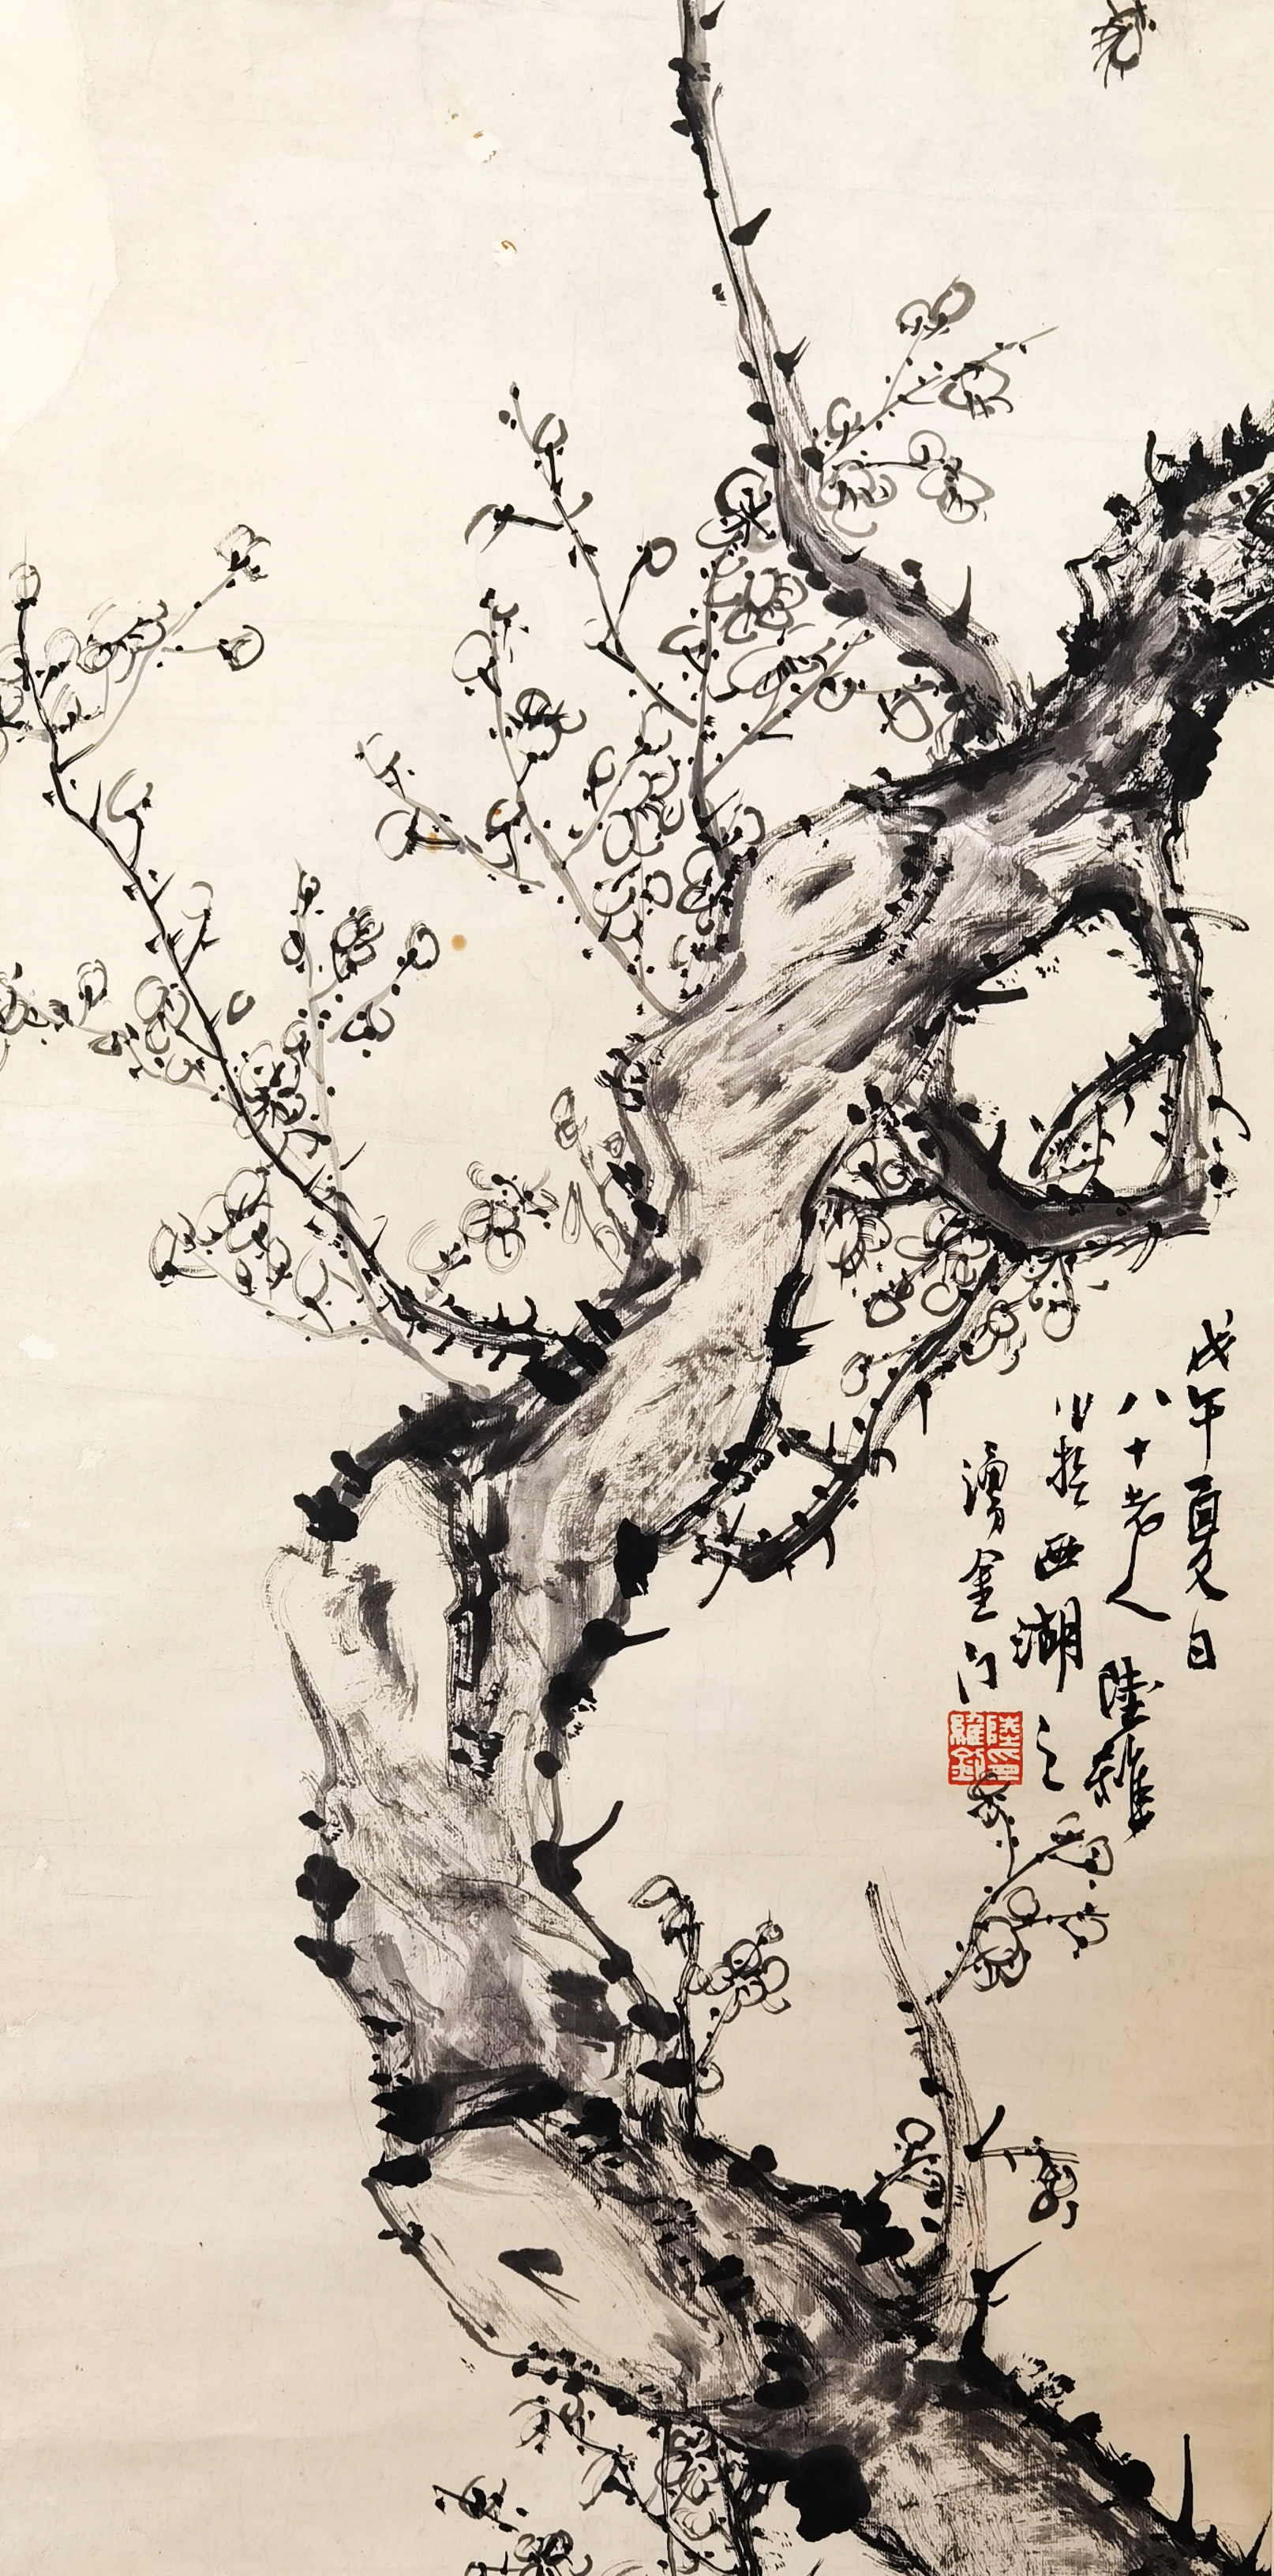 戊午夏日
八十老人陸維
於西湖之
湧金門
陸維釗印